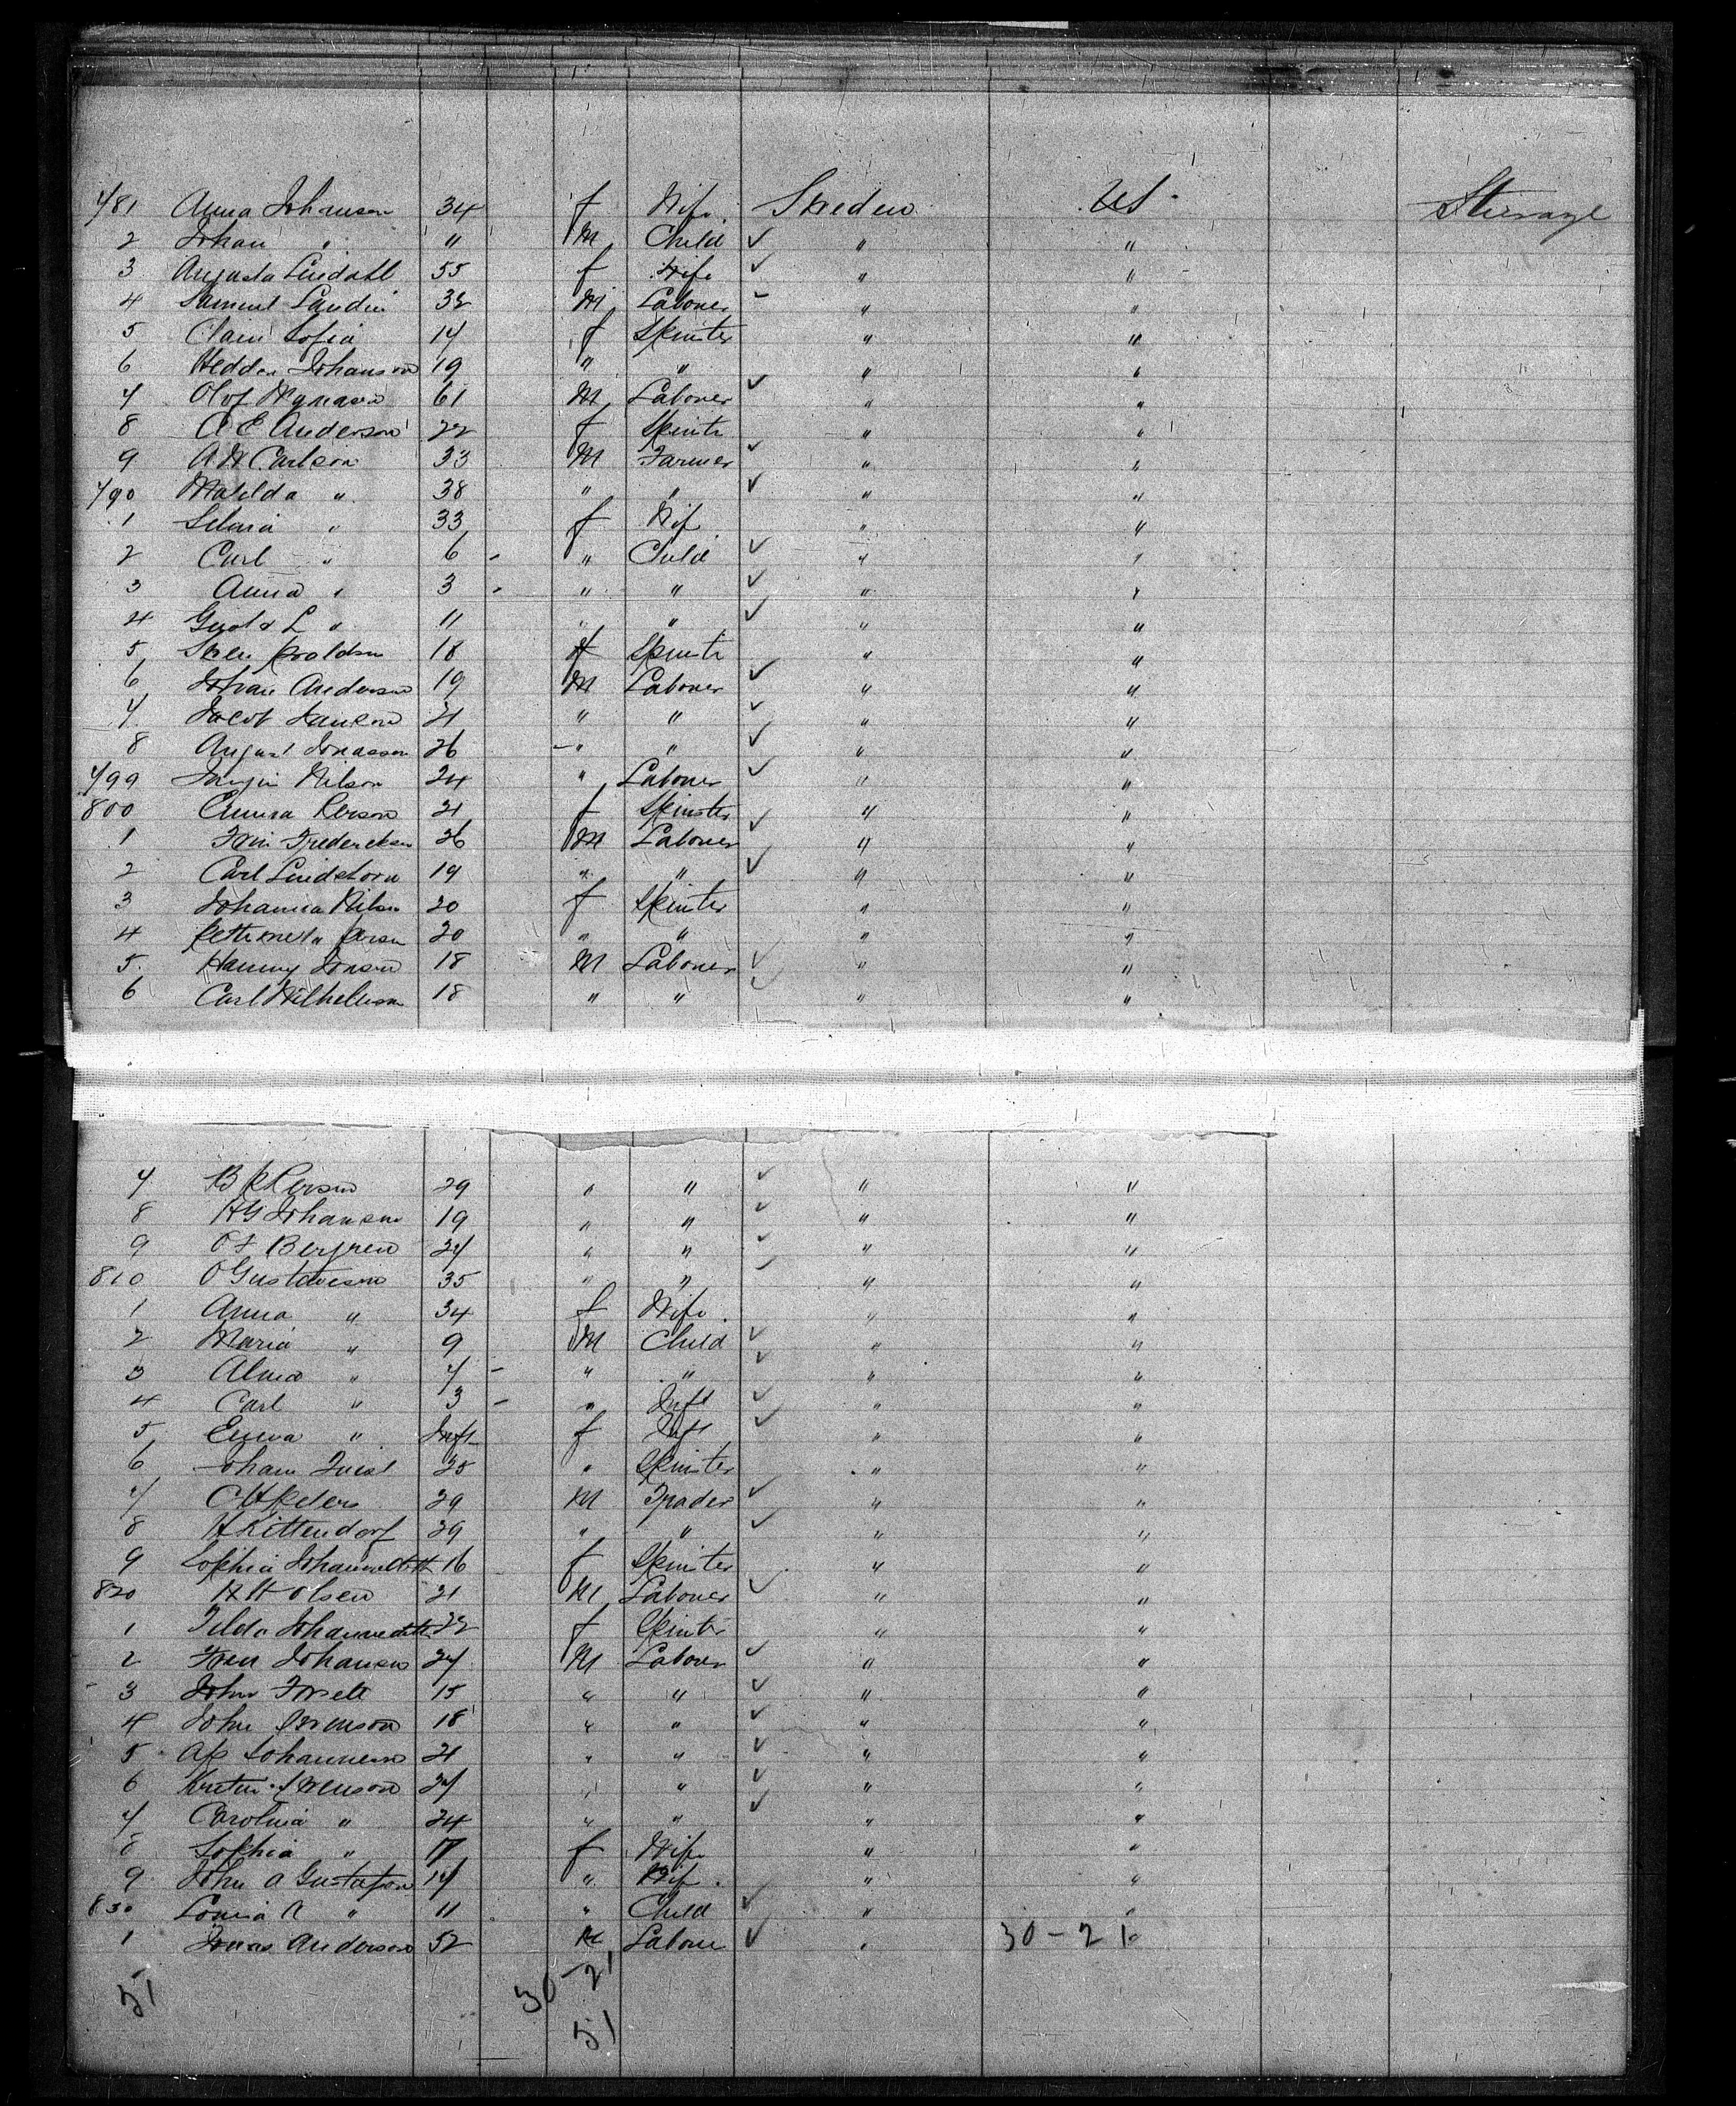 781 Anna Johanson 34 f Wife Sweden US Steerage
2 Johan " 11 M Child " "
3 Augusta Lindahl 55 f Wife " "
4 Samuel Landin 32 M Laborer " "
5 Sofia 14 f Spinster " "
6 Hedda Johanson 19 " " " "
7 Olof 61 M Laborer " "
8 A E Anderson 22 f Spinstr " "
9 A W Carlson 33 M Farmer " "
790 Matilda " 38 " " " "
1 " 33 f Wif " "
2 Carl " 6 - " Child " "
3 Anna " 3 - " " " "
4 L " 11 " " " "
5 18 f Spinstr " "
6 Johan Anderson 19 M Laborer " "
7 Jacob 21 " " " "
8 August Jonasson 26 " " " "
799 Nilson 24 " Laborer " "
800 Emma Person 21 f Spinster " "
1 Fredericksen 26 M Laborer " "
2 Carl Lindstorn 19 " " " "
3 Johanna Nilson 20 f Spinster " "
4 20 " " " "
5 Jonson 18 M Laborer " "
6 Carl Wilhelmson 18 " " " "
7 B P Person 29 " " " "
8 H G Johanson 19 " " " "
9 Bergren 27 " " " "
810 O Gustaveson 35 " " " "
1 Anna " 34 f Wife " "
2 Maria " 9 M Child " "
3 Alma " 7 - " " " "
4 Carl " 3 - " Inft " "
5 Emma " Inft f Inft " "
6 25 " Spinster " "
7 C H Peters 29 M Trader " "
8 H Kittendorf 29 " " " "
9 Sophia 16 f Spinster " "
820 H H Olsen 21 M Laborer " "
1 Tilda 22 f Spinster " "
2 Johanson 27 M Laborer " "
3 John 15 " " " "
4 John Svenson 18 " " " "
5 Johanneson 21 " " " "
6 Svenson 27 " " " "
7 Carolina " 24 " " " "
8 Sophia " 17 f Wife " "
9 John A Gustafson 17 " Wif " "
830 A " 11 " Child " "
1 Jonas Anderson 52 M Laborer " 30-21 "
51 30-21
51